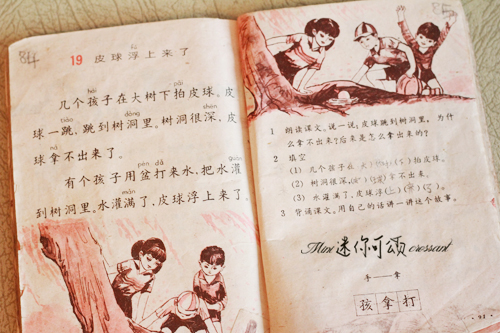 84
19 皮球浮上来了
hái pāi
几个孩子在大树下拍皮球。皮
dòng shēn
球一跳，跳到树洞里。树洞很深，皮
ná
球拿不出来了。
pén dǎ guàn
有个孩子用盆打来水，把水灌
mǎn
到树洞里。水灌满了，皮球浮上来了。
84
1 朗读课文。说一说：皮球跳到树洞里，为什
么拿不出来？后来是怎么拿出来的？
2 填空
(1) 几个孩子在大)树(下)拍皮球。
(2) 树洞很深，( )拿不出来。
(3) 水灌满了，皮球浮(上)(来)(了)。
3 背诵课文。用自己的话讲一讲这个故事。
Mini 迷你可颂 cressant
手 — 拿
孩 拿 打